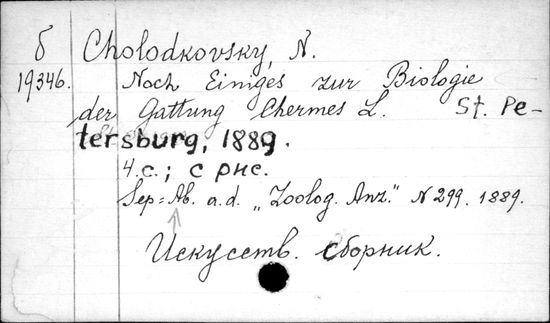 б Cholodkovsky, N.
19346. Noch Einiges zur Biologie
der Gattung Chermes L. St. Pe-
tersburg, 1889.
4.с.; с рис.
Sep=Ab. a.d. „Zoolog. Anz." N 299. 1889.
Искусств. сборник.